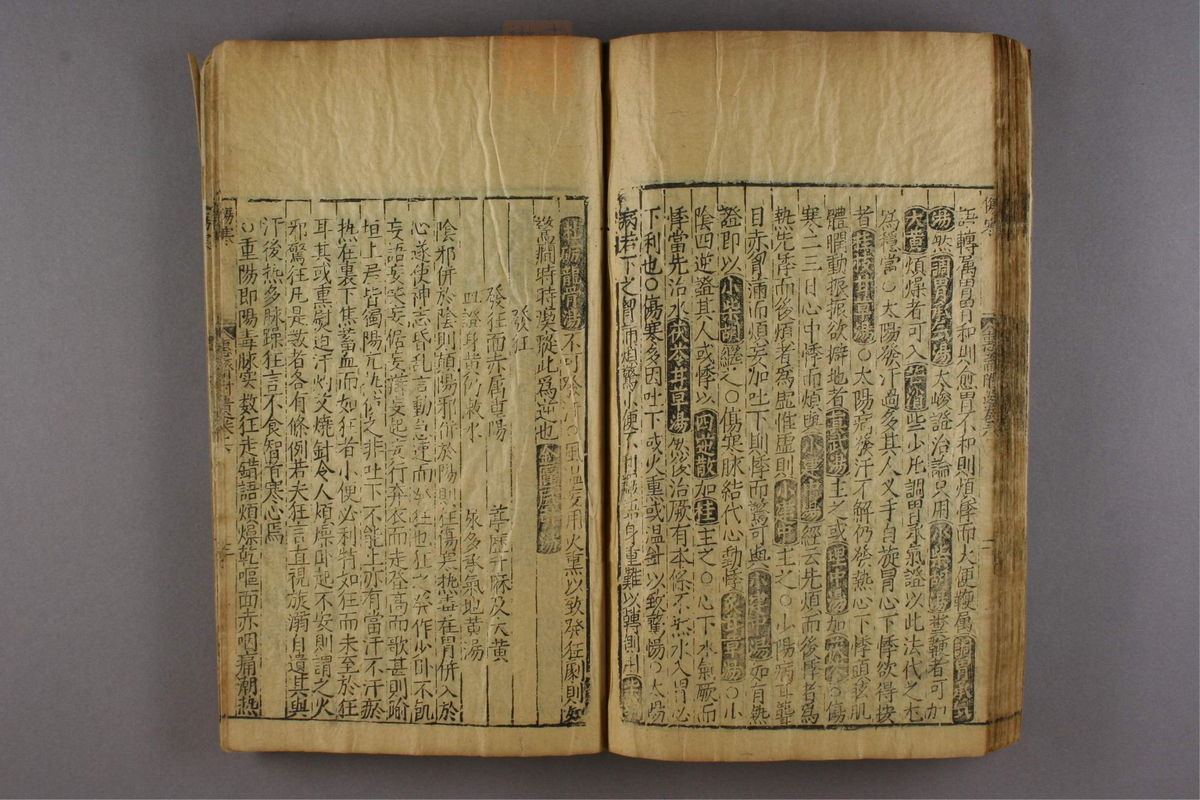 語轉属胃胃和則愈胃不和則煩悸而大便鞕属調胃承氣
湯然調胃承氣湯太峻證治論只用小柴胡湯大鞕者可加
大黄煩燥者可入芒硝些少比調胃承氣證以此法代之尤
爲穩當○太陽發汗過多其人叉手自旋冒心下悸欲得按
者桂枝甘草湯○太陽病發汗不解仍發熱心下悸頭眩肌
體瞤動振振欲擗地者真武湯主之或理中湯加○傷
寒二三日心中悸而煩與小建中湯經云先煩而後悸者爲
熱先悸而後煩者爲虛惟虛則小建中主之○少陽病耳聾
目赤胷滿而煩妄加吐下則悸而驚可與小建中湯如有熱
證即以小柴胡繼之○傷寒脉結代心動悸炙甘草湯○少
陰四逆證其人或悸以四逆散加桂主之○心下水氣厥而
悸當先治水茯苓甘草湯然後治厥有本條不然水入胃必
下利也○傷寒多因吐下或火熏或温針以致驚惕○太陽
病若下之胷滿煩驚小便不利譫語身重難以轉側出柴
牡礪龍骨湯不可○風温用火熏以致發狂劇則如
驚癇時時瘈瘲此爲逆也
發狂
發狂面赤属重陽
身黄仍救水 尿多承氣地黄湯
陰邪併於陰則顛陽邪併於陽則狂傷寒熱毒在胃併入於
心遂使神志昏乱言動急速而發狂也狂之發作少卧不飢
妄語妄笑妄倨妄譫妄起妄行弃衣而走登高而歌甚則踰
垣上屋皆獨陽亢熱使之非吐下不能止亦有當汗不汗瘀
熱在裏下焦蓄血而如狂者小便必利特如狂而未至於狂
耳其或熏熨迫汗灼艾燒針令人煩燥卧起不安則謂之火
邪驚狂凡是數者各有條例若夫狂言直視旋溺自遺其與
汗後熱多脉躁狂言不食智者寒心焉
○重陽即陽毒脉实數狂走錯語煩燥乾嘔面赤咽痛潮熱